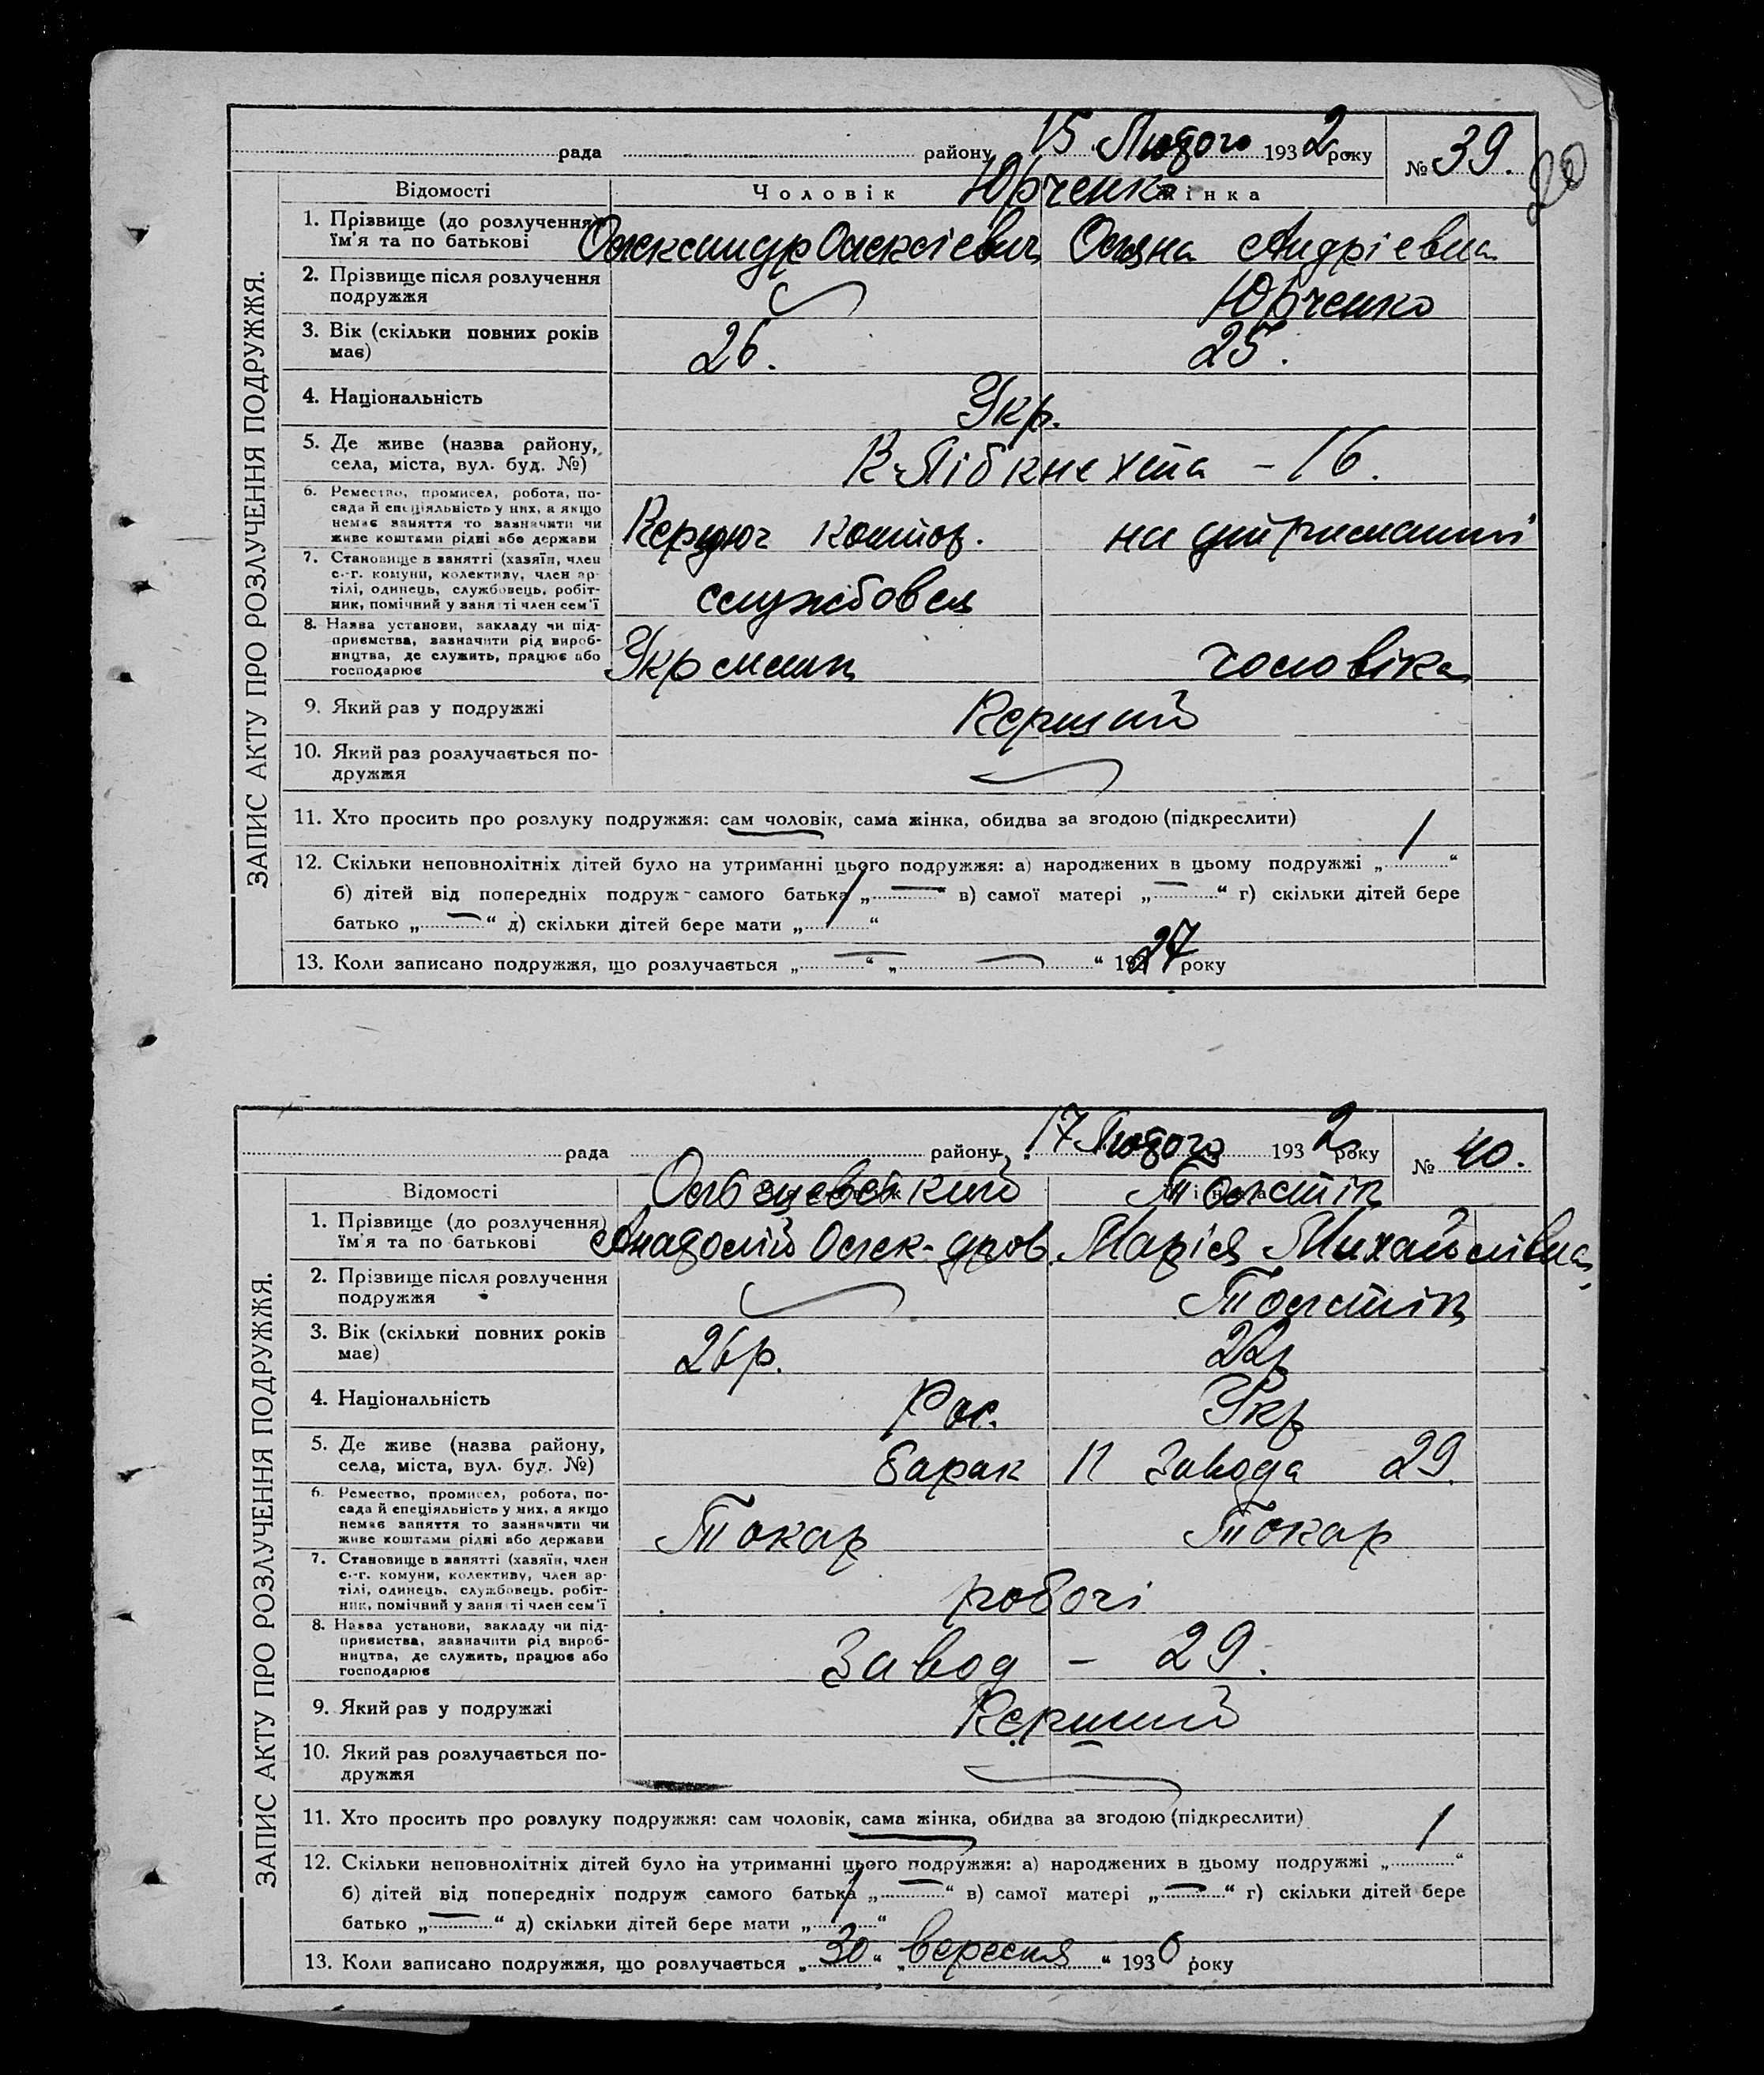 рада района 15 Лютого 1932 року № 39.
20
Відомості Чоловік Жінка
Юрченко
1. Прізвище (до розлучення) ім'я та по батькові Олександр Олексієвич Оляна Андрієвна
2. Прізвище після розлучення подружжя Юрченко
3. Вік (скільки повних років має) 26. 25.
4. Національність Укр.
5. Де живе (назва району, села, міста, вул. буд. №) К-Лібкнехта – 16.
6. Ремество, промисел, робота, посада й спеціяльність у них, а якщо немає заняття то зазначити чи живе коштами рідні або держави Керуюч контор. на утриманні
7. Становище в занятті (хазяїн, член с.-г. комуни, колективу, член артілі, одинець, службовець, робітник, помічний у занятті член сем'ї службовец
8. Назва установи, закладу чи підприємства, зазначити рід виробництва, де служить, працює або господарює чоловіка
9. Який раз у подружжі Перший
10. Який раз розлучається подружжя
11. Хто просить про розлуку подружжя: сам чоловік, сама жінка, обидва за згодою (підкреслити)
12. Скільки неповнолітніх дітей було на утриманні цього подружжя: а) народжених в цьому подружжі „ 1 “
б) дітей від попередніх подруж - самого батька „ — “ в) самої матері „ — “ г) скільки дітей бере
батько „ — “ д) скільки дітей бере мати „ 1 “
13. Коли записано подружжя, що розлучається „ — “ „ — “ 1927 року
ЗАПИС АКТУ ПРО РОЗЛУЧЕННЯ ПОДРУЖЖЯ.
рада району 17 Лютого 1932 року № 40.
Відомості
Толстік
1. Прізвище (до розлучення) ім'я та по батькові Анатолій Олек-дров. Марія Михайлівна
2. Прізвище після розлучення подружжя Толстік
3. Вік (скільки повних років має) 26 р. 22 р
4. Національність Рос. Укр
5. Де живе (назва району, села, міста, вул. буд. №) барак 11 Завода 29.
6. Ремество, промисел, робота, посада й спеціяльність у них, а якщо немає заняття то зазначити чи живе коштами рідні або держави Токар Токар
7. Становище в занятті (хазяїн, член с.-г. комуни, колективу, член артілі, одинець, службовець, робітник, помічний у занятті член сем'ї робочі
8. Назва установи, закладу чи підприємства, зазначити рід виробництва, де служить, працює або господарює Завод – 29.
9. Який раз у подружжі Перший
10. Який раз розлучається подружжя
11. Хто просить про розлуку подружжя: сам чоловік, сама жінка, обидва за згодою (підкреслити)
12. Скільки неповнолітніх дітей було на утриманні цього подружжя: а) народжених в цьому подружжі „ 1 “
б) дітей від попередніх подруж самого батька „ — “ в) самої матері „ — “ г) скільки дітей бере
батько „ — “ д) скільки дітей бере мати „ 1 “
13. Коли записано подружжя, що розлучається „ 30 “ „ вересня “ 1930 року
ЗАПИС АКТУ ПРО РОЗЛУЧЕННЯ ПОДРУЖЖЯ.